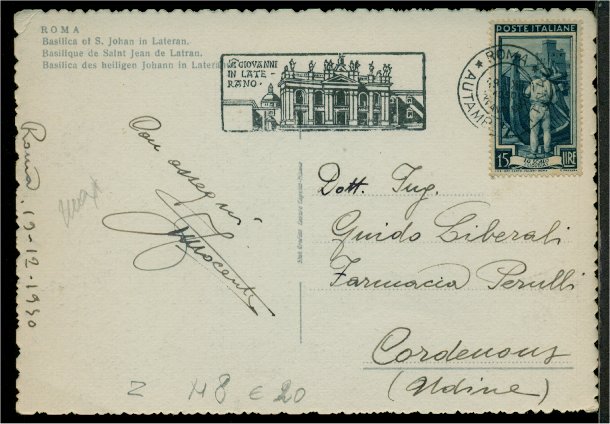 ROMA
Basilica of S. Johan in Lateran.
Basilique de Saint Jean de Latran.
Basilica des heiligen Johann in Lateran
S. GIOVANNI
IN LATE-
RANO.
POSTE ITALIANE
15 LIRE
ROMA
Roma. 19-12-1950
Con ossequi
Innocenti
Dott. Ing.
Guido Liberali
Farmacia Perulli
Cordenons
(Udine)
Z M8 € 20